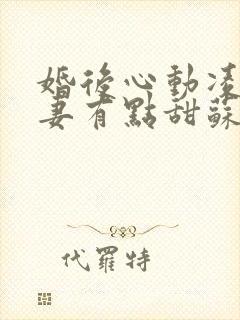 婚後心動凌
妻有點甜蘇
代羅特